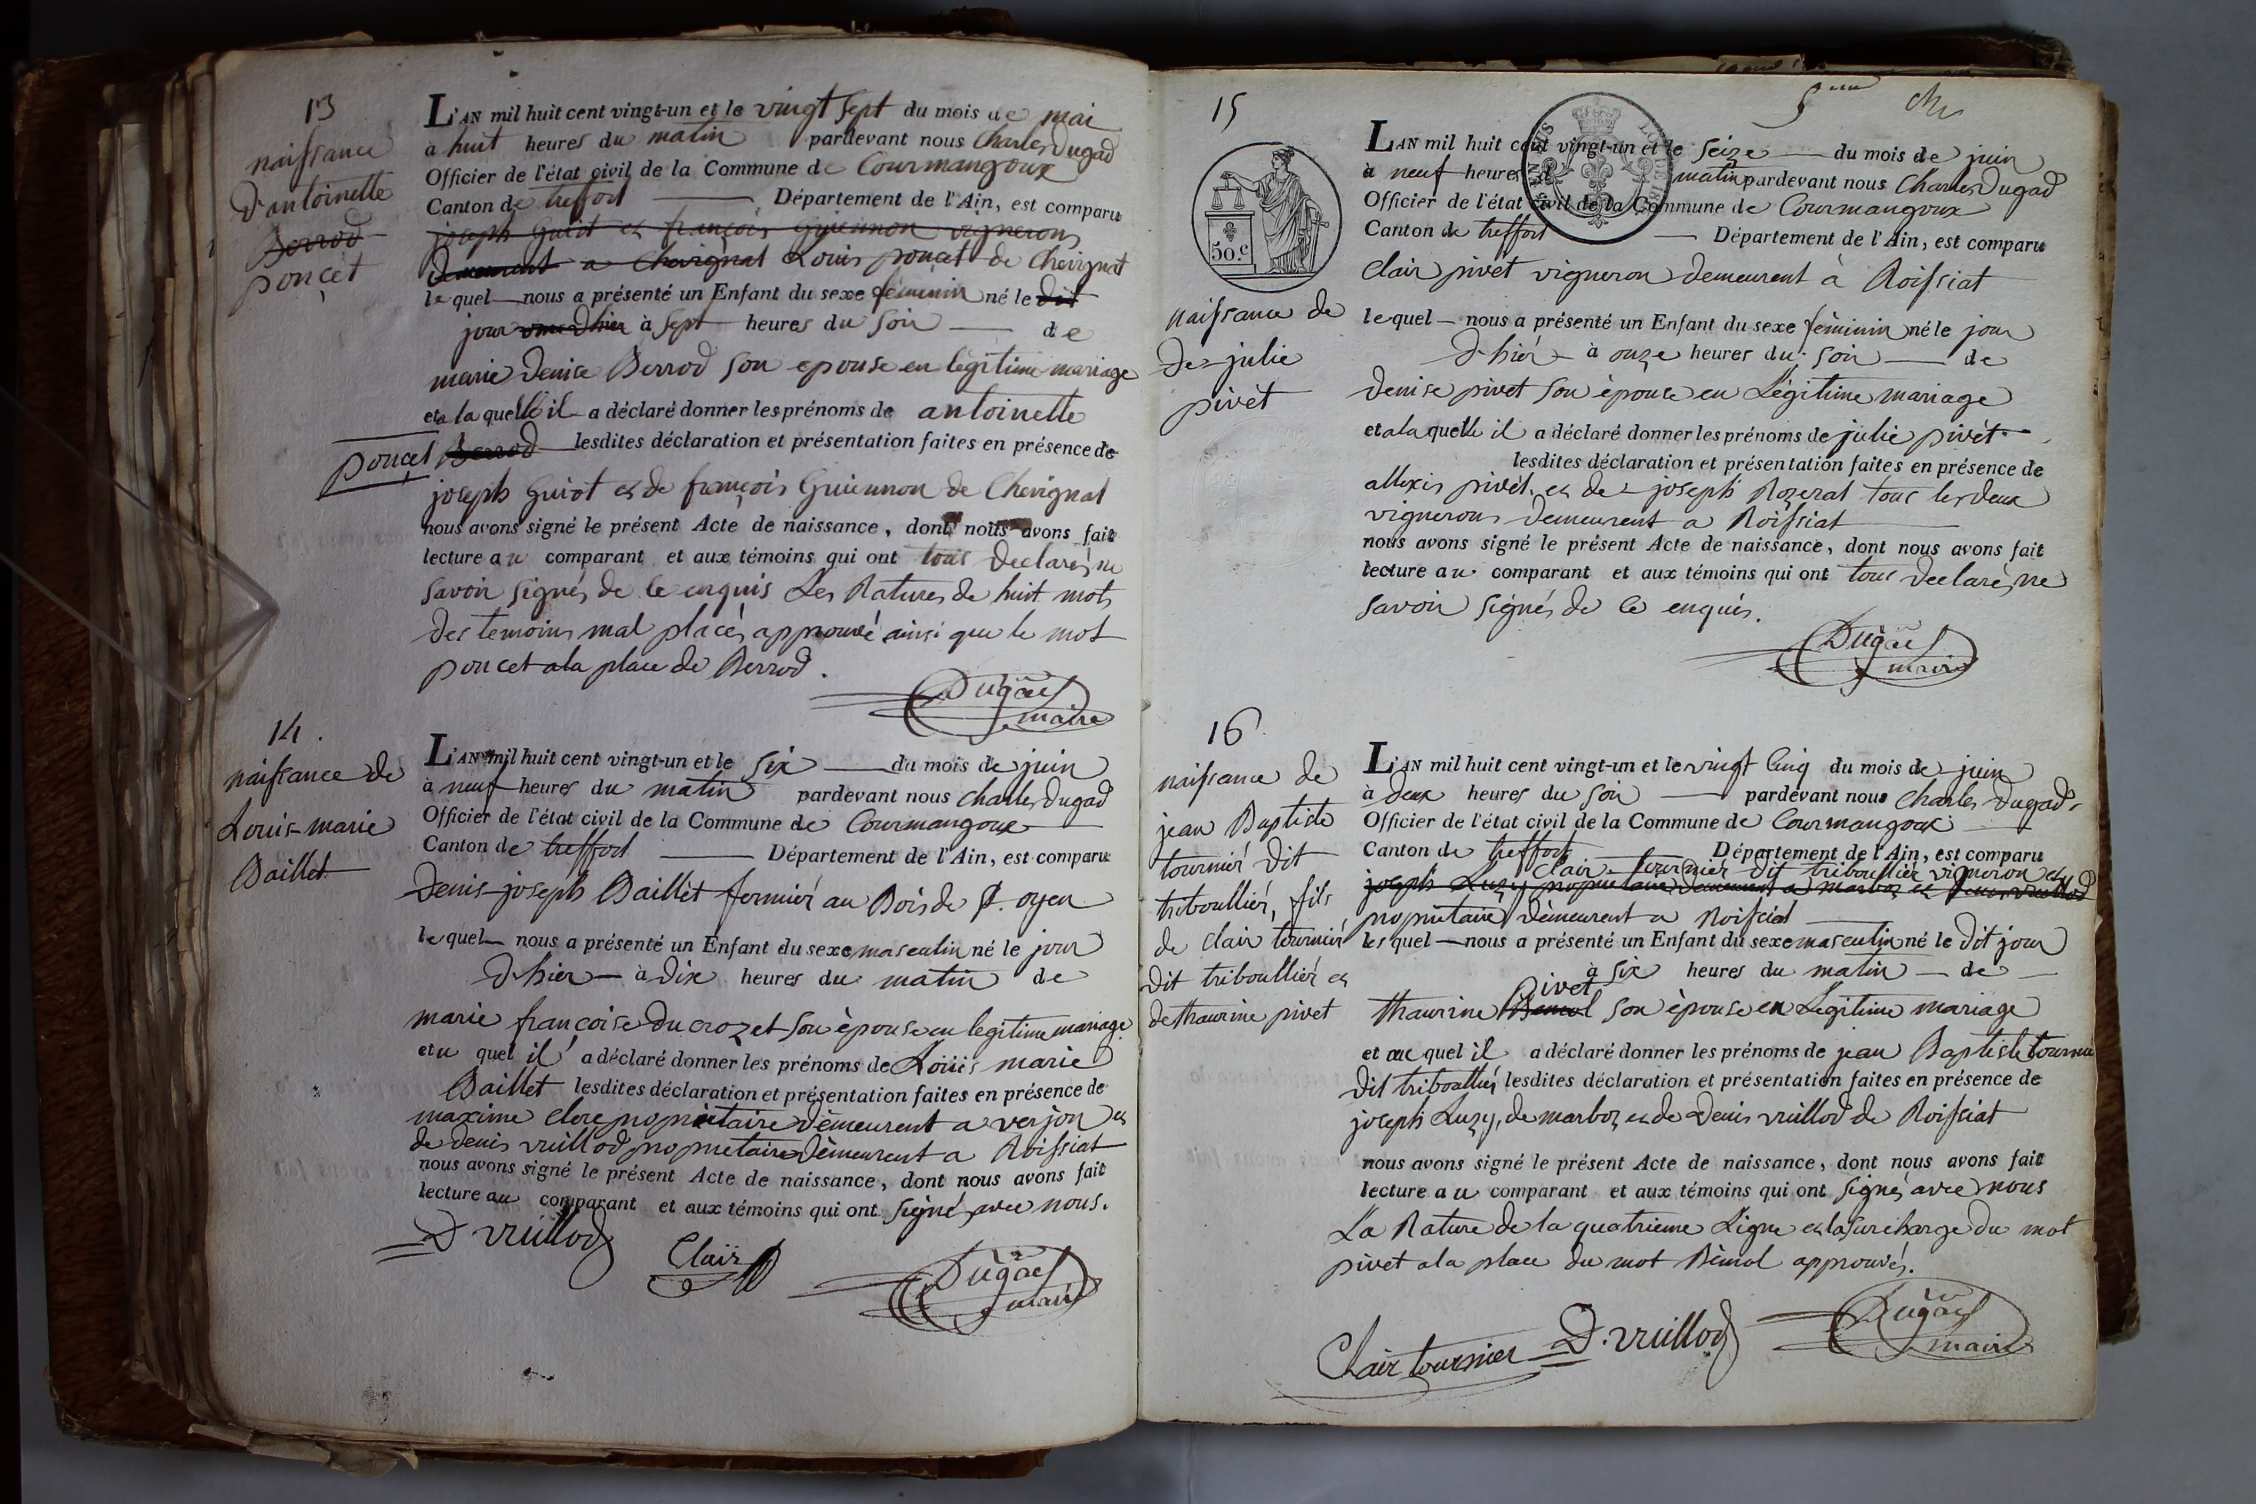 13
naissance
d'antoinette
Berrod
ponçet
L'AN mil huit cent vingt-un et le vingt sept du mois de mai
à huit heures du matin pardevant nous Charles Dugad
Officier de l'état civil de la Commune de Courmangoux
Canton de treffort Département de l'Ain, est comparu
joseph Guiot et françois Guiennon vignerons
demeurent a Chevignat Louis poncet de Chevignat
lequel nous a présenté un Enfant du sexe féminin né le dit
jour d'hier à sept heures du soir de
marie Denise Berrod son epouse en legitime mariage
et a la quelle il a déclaré donner les prénoms de antoinette
ponçet Berrod lesdites déclaration et présentation faites en présence de
joseph Guiot et de françois Guiennon de Chevignat
nous avons signé le présent Acte de naissance, dont nous avons fait
lecture au comparant et aux témoins qui ont tous declarés ne
savoir signés de ce enquis Les Ratures de huit mots
des temoins mal placés approuvé ainsi que le mot
poncet a la place de Berrod.
Dugad
maire
14.
naissance de
Louis-marie
Baillet
L'AN mil huit cent vingt-un et le six du mois de juin
à neuf heures du matin pardevant nous Charles Dugad
Officier de l'état civil de la Commune de Courmangoux
Canton de treffort Département de l'Ain, est comparu
Denis-joseph Baillet fermiér au Bois de St. oyen
lequel nous a présenté un Enfant du sexe masculin né le jour
d'hier à dix heures du matin de
marie françoise Ducrozet son èpouse en legitime mariage
et u quel il a déclaré donner les prénoms de Louis marie
Baillet lesdites déclaration et présentation faites en présence de
maxime Clerc propriètaire dèmeurent a verjon et
de denis vuillod propriètaire dèmeurent a Roissiat
nous avons signé le présent Acte de naissance, dont nous avons fait
lecture au comparant et aux témoins qui ont signé avec nous.
D vuillod
Clair
Dugad
maire
5eme
15
50.c
naissance de
de julie
pivèt
L'AN mil huit cent vingt-un et le seize du mois de juin
à neuf heures matin pardevant nous Charles Dugad
Officier de l'état civil de la Commune de Courmangoux
Canton de treffort Département de l'Ain, est comparu
Clair pivet vigneron demeurent à Roissiat
lequel nous a présenté un Enfant du sexe féminin né le jour
d'hiér à onze heures du soir de
Denise pivet son èpouse en Légitime mariage
et a la quelle il a déclaré donner les prénoms de julie pivèt
lesdites déclaration et présentation faites en présence de
allexis pivèt et de joseph Rozerat tous les deux
vignerons demeurent a Roissiat
nous avons signé le présent Acte de naissance, dont nous avons fait
lecture au comparant et aux témoins qui ont tous declarès ne
savoir signés de ce enquis.
Dugad
maire
16
naissance de
jean Baptiste
tourniér dit
triboulliér, fils
de clair tourniér
dit triboulliér et
de thaurine pivet
L'AN mil huit cent vingt-un et le vingt cinq du mois de juin
à deux heures du soir pardevant nous Charles Dugad
Officier de l'état civil de la Commune de Courmangoux
Canton de treffort Département de l'Ain, est comparu
Clair tourniér dit triboulliér vigneron et
joseph Luzy propriètaire demeurent a marboz et denis vuillod
propriètaire dèmeurent a Roissiat
lesquel nous a présenté un Enfant du sexe masculin né le dit jour
à six heures du matin de
pivet
thaurine Bèmol son èpouse en Légitime mariage
et au quel il a déclaré donner les prénoms de jean Baptiste tournier
dit triboulliér lesdites déclaration et présentation faites en présence de
joseph Luzy, de marboz et de Denis vuillod de Roissiat
nous avons signé le présent Acte de naissance, dont nous avons fait
lecture au comparant et aux témoins qui ont signés avec nous
La Rature de la quatrieme Ligne et la surcharge du mot
pivet a la place du mot Bèmol approuvés.
Clair tournier
D. vuillod
Dugad
maire